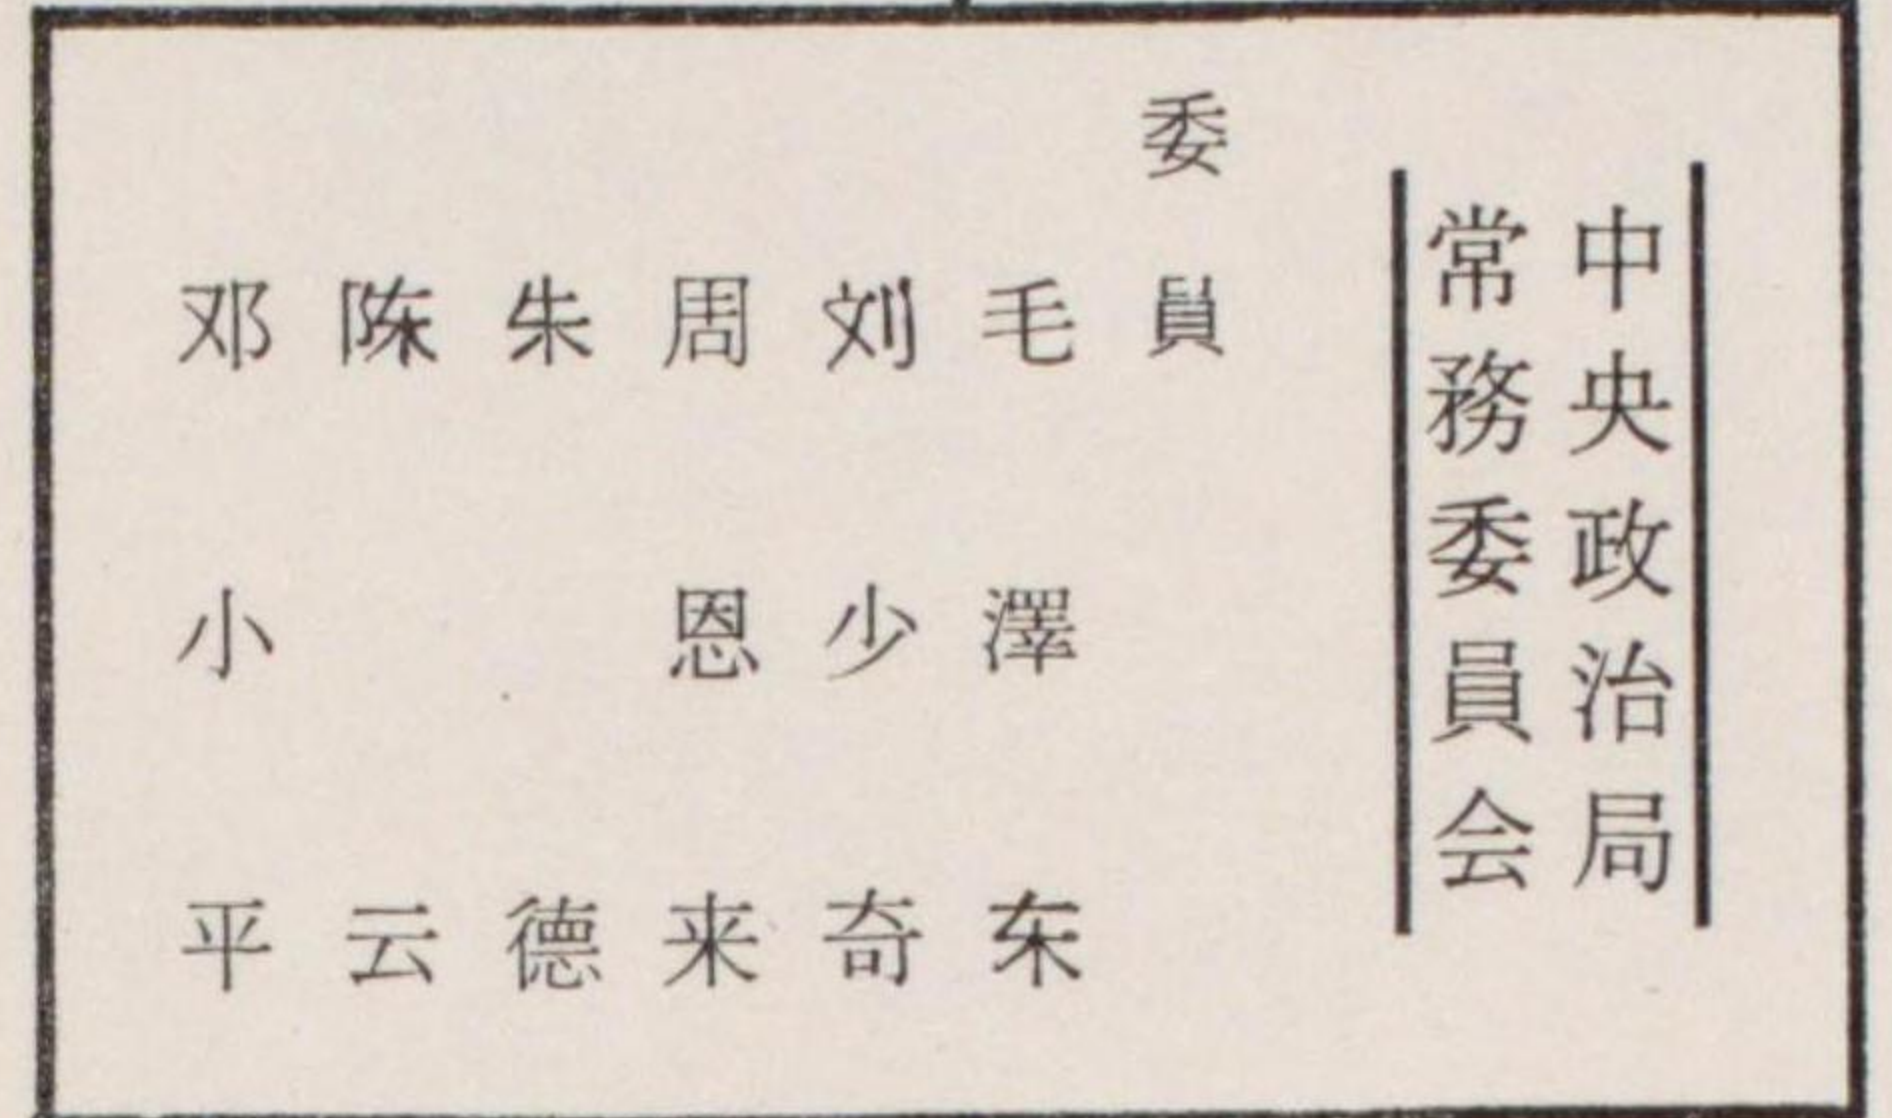 中央政治局
常務委員会
委員
毛澤东
刘少奇
周恩来
朱德
陈云
邓小平